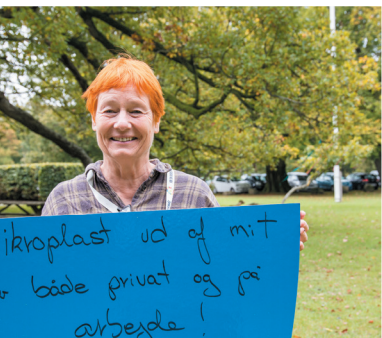 ikroplast ud af mit
både privat og på
arbejde!